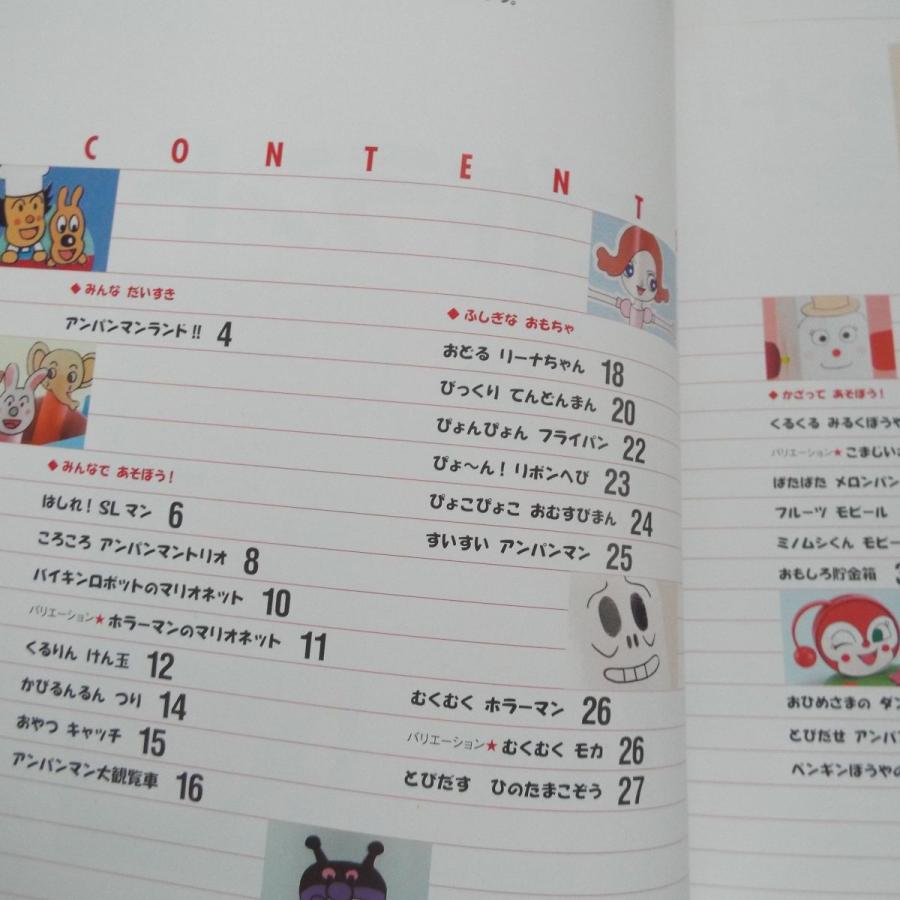 CONTENT
◆みんな だいすき
アンパンマンランド!! 4
◆みんなで あそぼう!
はしれ! SLマン 6
ころころ アンパンマントリオ 8
バイキンロボットのマリオネット 10
バリエーション★ホラーマンのマリオネット 11
くるりん けん玉 12
かびるんるん つり 14
おやつ キャッチ 15
アンパンマン大観覧車 16
◆ふしぎな おもちゃ
おどる リーナちゃん 18
びっくり てんどんまん 20
ぴょんぴょん フライパン 22
ぴょ〜ん! リボンへび 23
ぴょこぴょこ おむすびまん 24
すいすい アンパンマン 25
むくむく ホラーマン 26
バリエーション★むくむく モカ 26
とびだす ひのたまこぞう 27
◆かざって あそぼう!
くるくる みるくぼうや
バリエーション★こまじい
ぱたぱた メロンパン
フルーツ モビール
ミノムシくん モビー
おもしろ貯金箱 3
おひめさまの ダン
とびだせ アンパン
ペンギンぼうやの